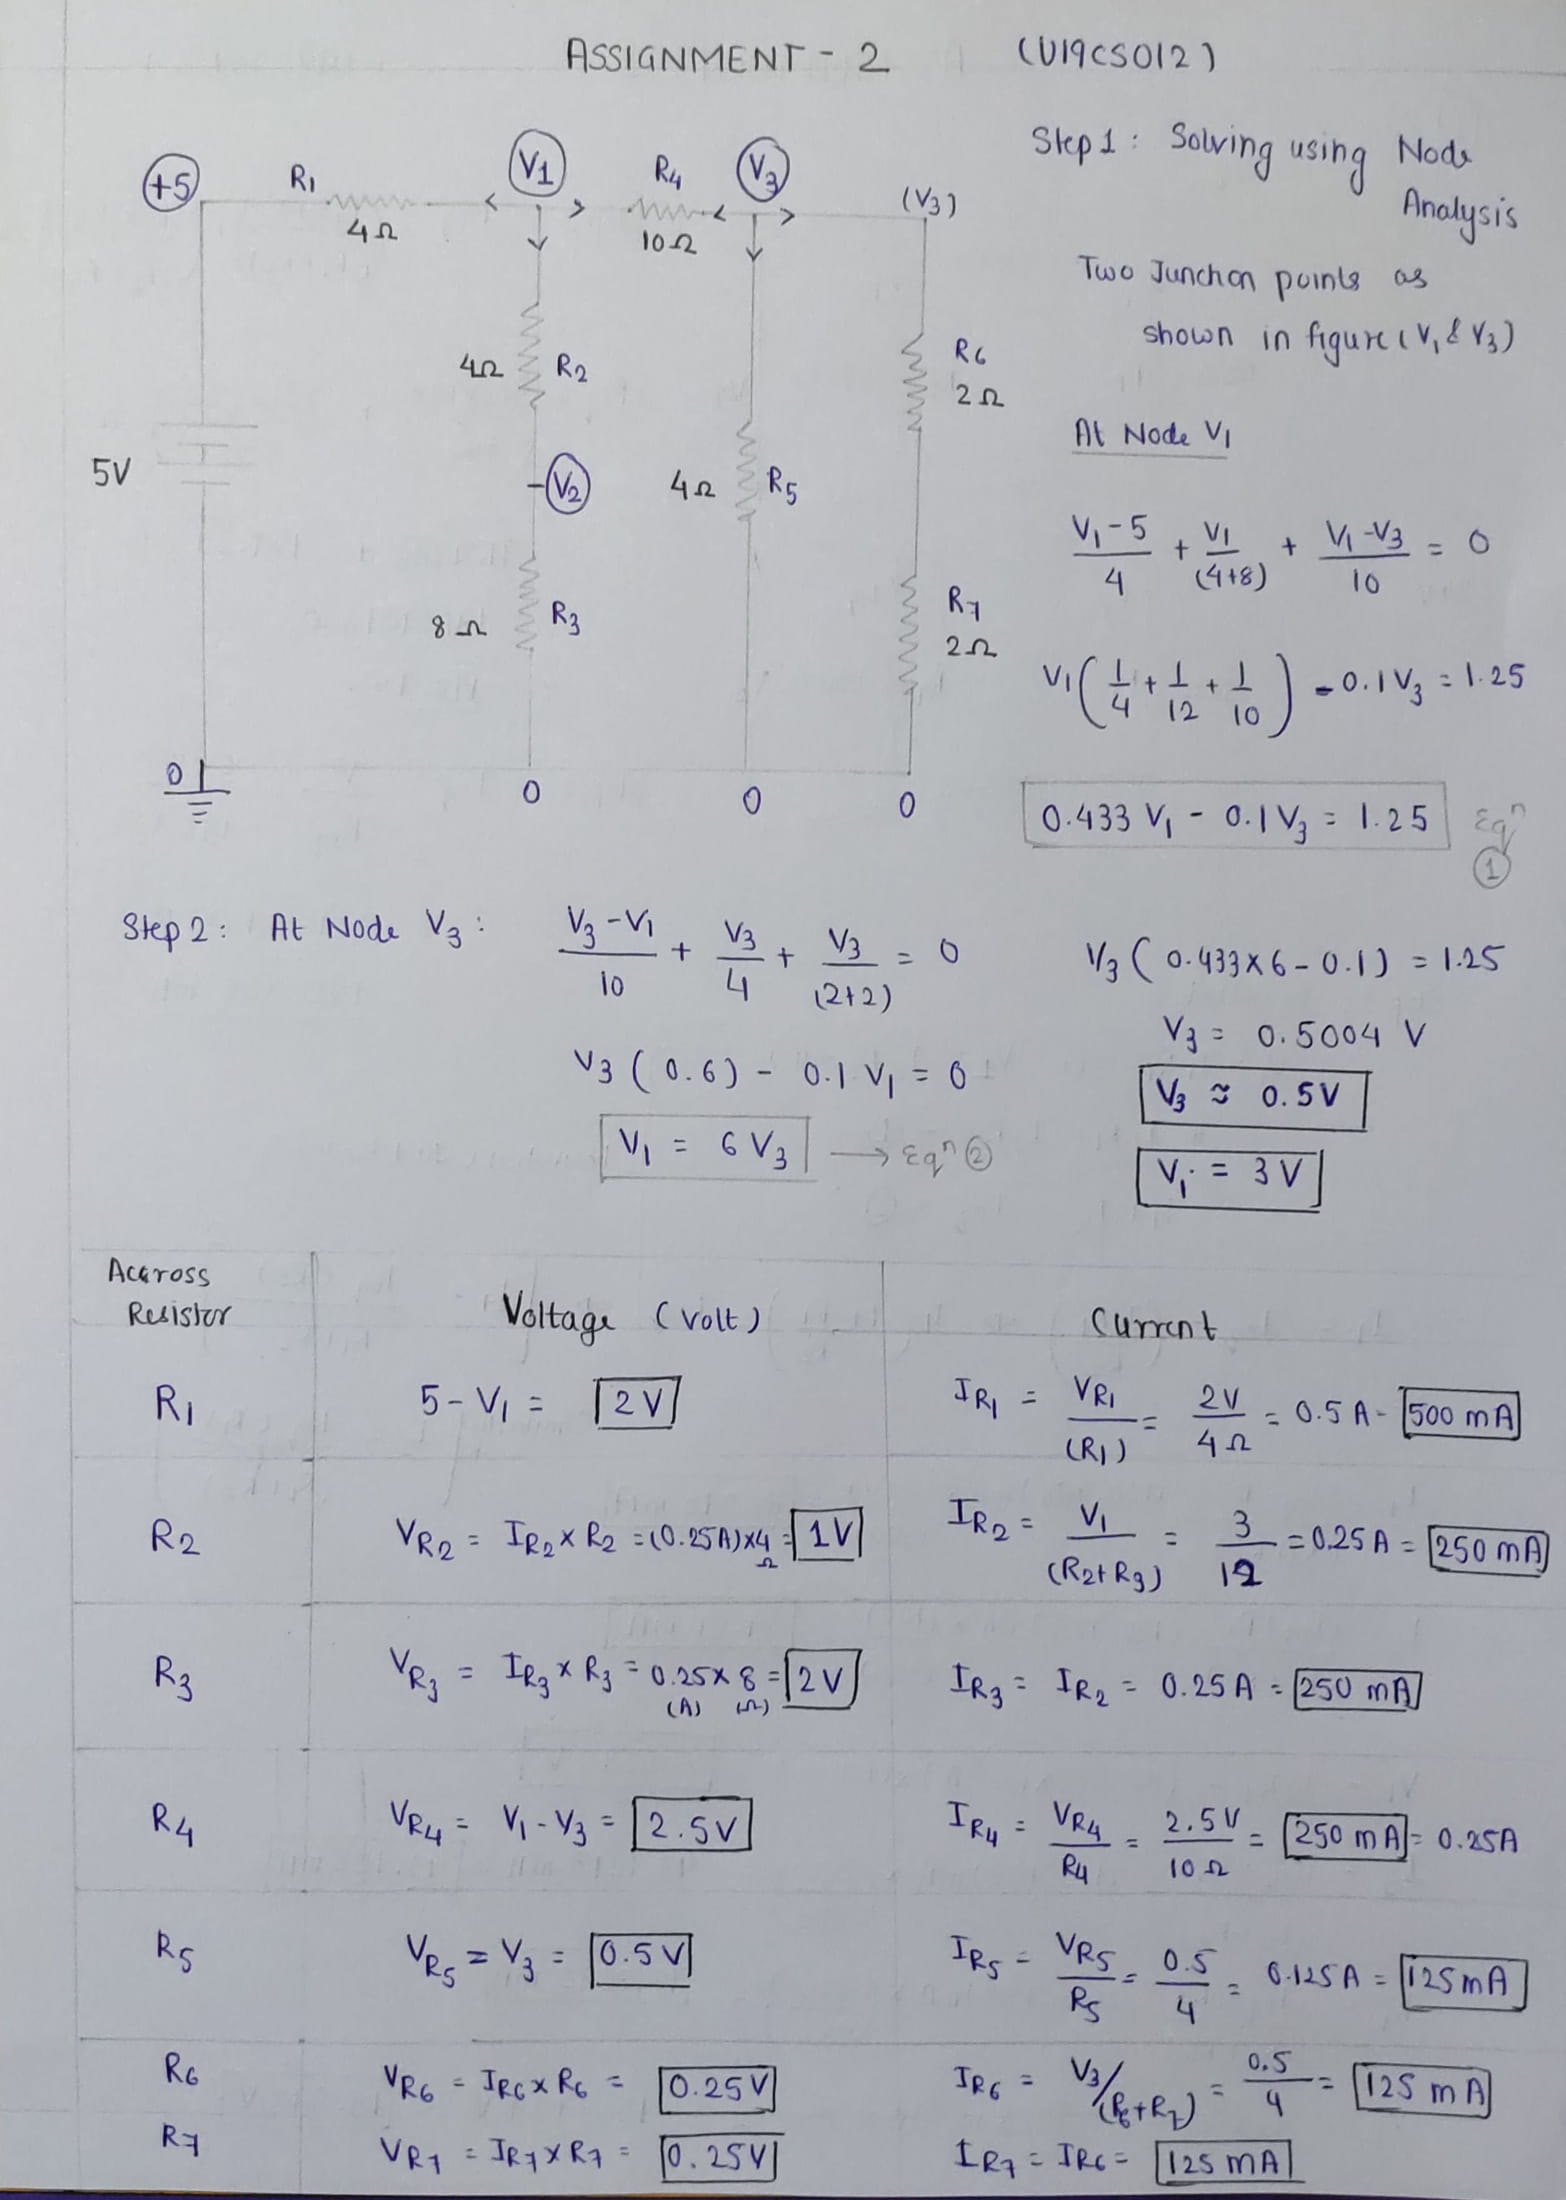 ASSIGNMENT - 2 (U19CS012)
+5 R1 4Ω V1 R4 10Ω V3 (V3)
4Ω R2
R6 2Ω
5V
V2
4Ω R5
8Ω R3
R7 2Ω
0 0 0 0
Step 1 : Solving using Node
Analysis
Two Junction points as
shown in figure (V1 & V3)
At Node V1
(V1 - 5)/4 + V1/(4+8) + (V1 - V3)/10 = 0
V1 ( 1/4 + 1/12 + 1/10 ) - 0.1 V3 = 1.25
0.433 V1 - 0.1 V3 = 1.25 Eqn ①
Step 2 : At Node V3 : (V3 - V1)/10 + V3/4 + V3/(2+2) = 0
V3 ( 0.6 ) - 0.1 V1 = 0
V1 = 6 V3 → Eqn ②
V3 ( 0.433 x 6 - 0.1 ) = 1.25
V3 = 0.5004 V
V3 ≈ 0.5V
V1 = 3 V
Accross Resistor Voltage (volt) Current
R1 5 - V1 = 2V IR1 = VR1/(R1) = 2V/4Ω = 0.5 A - 500 mA
R2 VR2 = IR2 x R2 = (0.25A) x 4Ω = 1V IR2 = V1/(R2+R3) = 3/12 = 0.25 A = 250 mA
R3 VR3 = IR3 x R3 = 0.25 (A) x 8 (Ω) = 2V IR3 = IR2 = 0.25 A = 250 mA
R4 VR4 = V1 - V3 = 2.5V IR4 = VR4/R4 = 2.5V/10Ω = 250 mA = 0.25A
R5 VR5 = V3 = 0.5V IR5 = VR5/R5 = 0.5/4 = 0.125 A = 125 mA
R6 VR6 = IR6 x R6 = 0.25V IR6 = V3/(R6+R7) = 0.5/4 = 125 mA
R7 VR7 = IR7 x R7 = 0.25V IR7 = IR6 = 125 mA